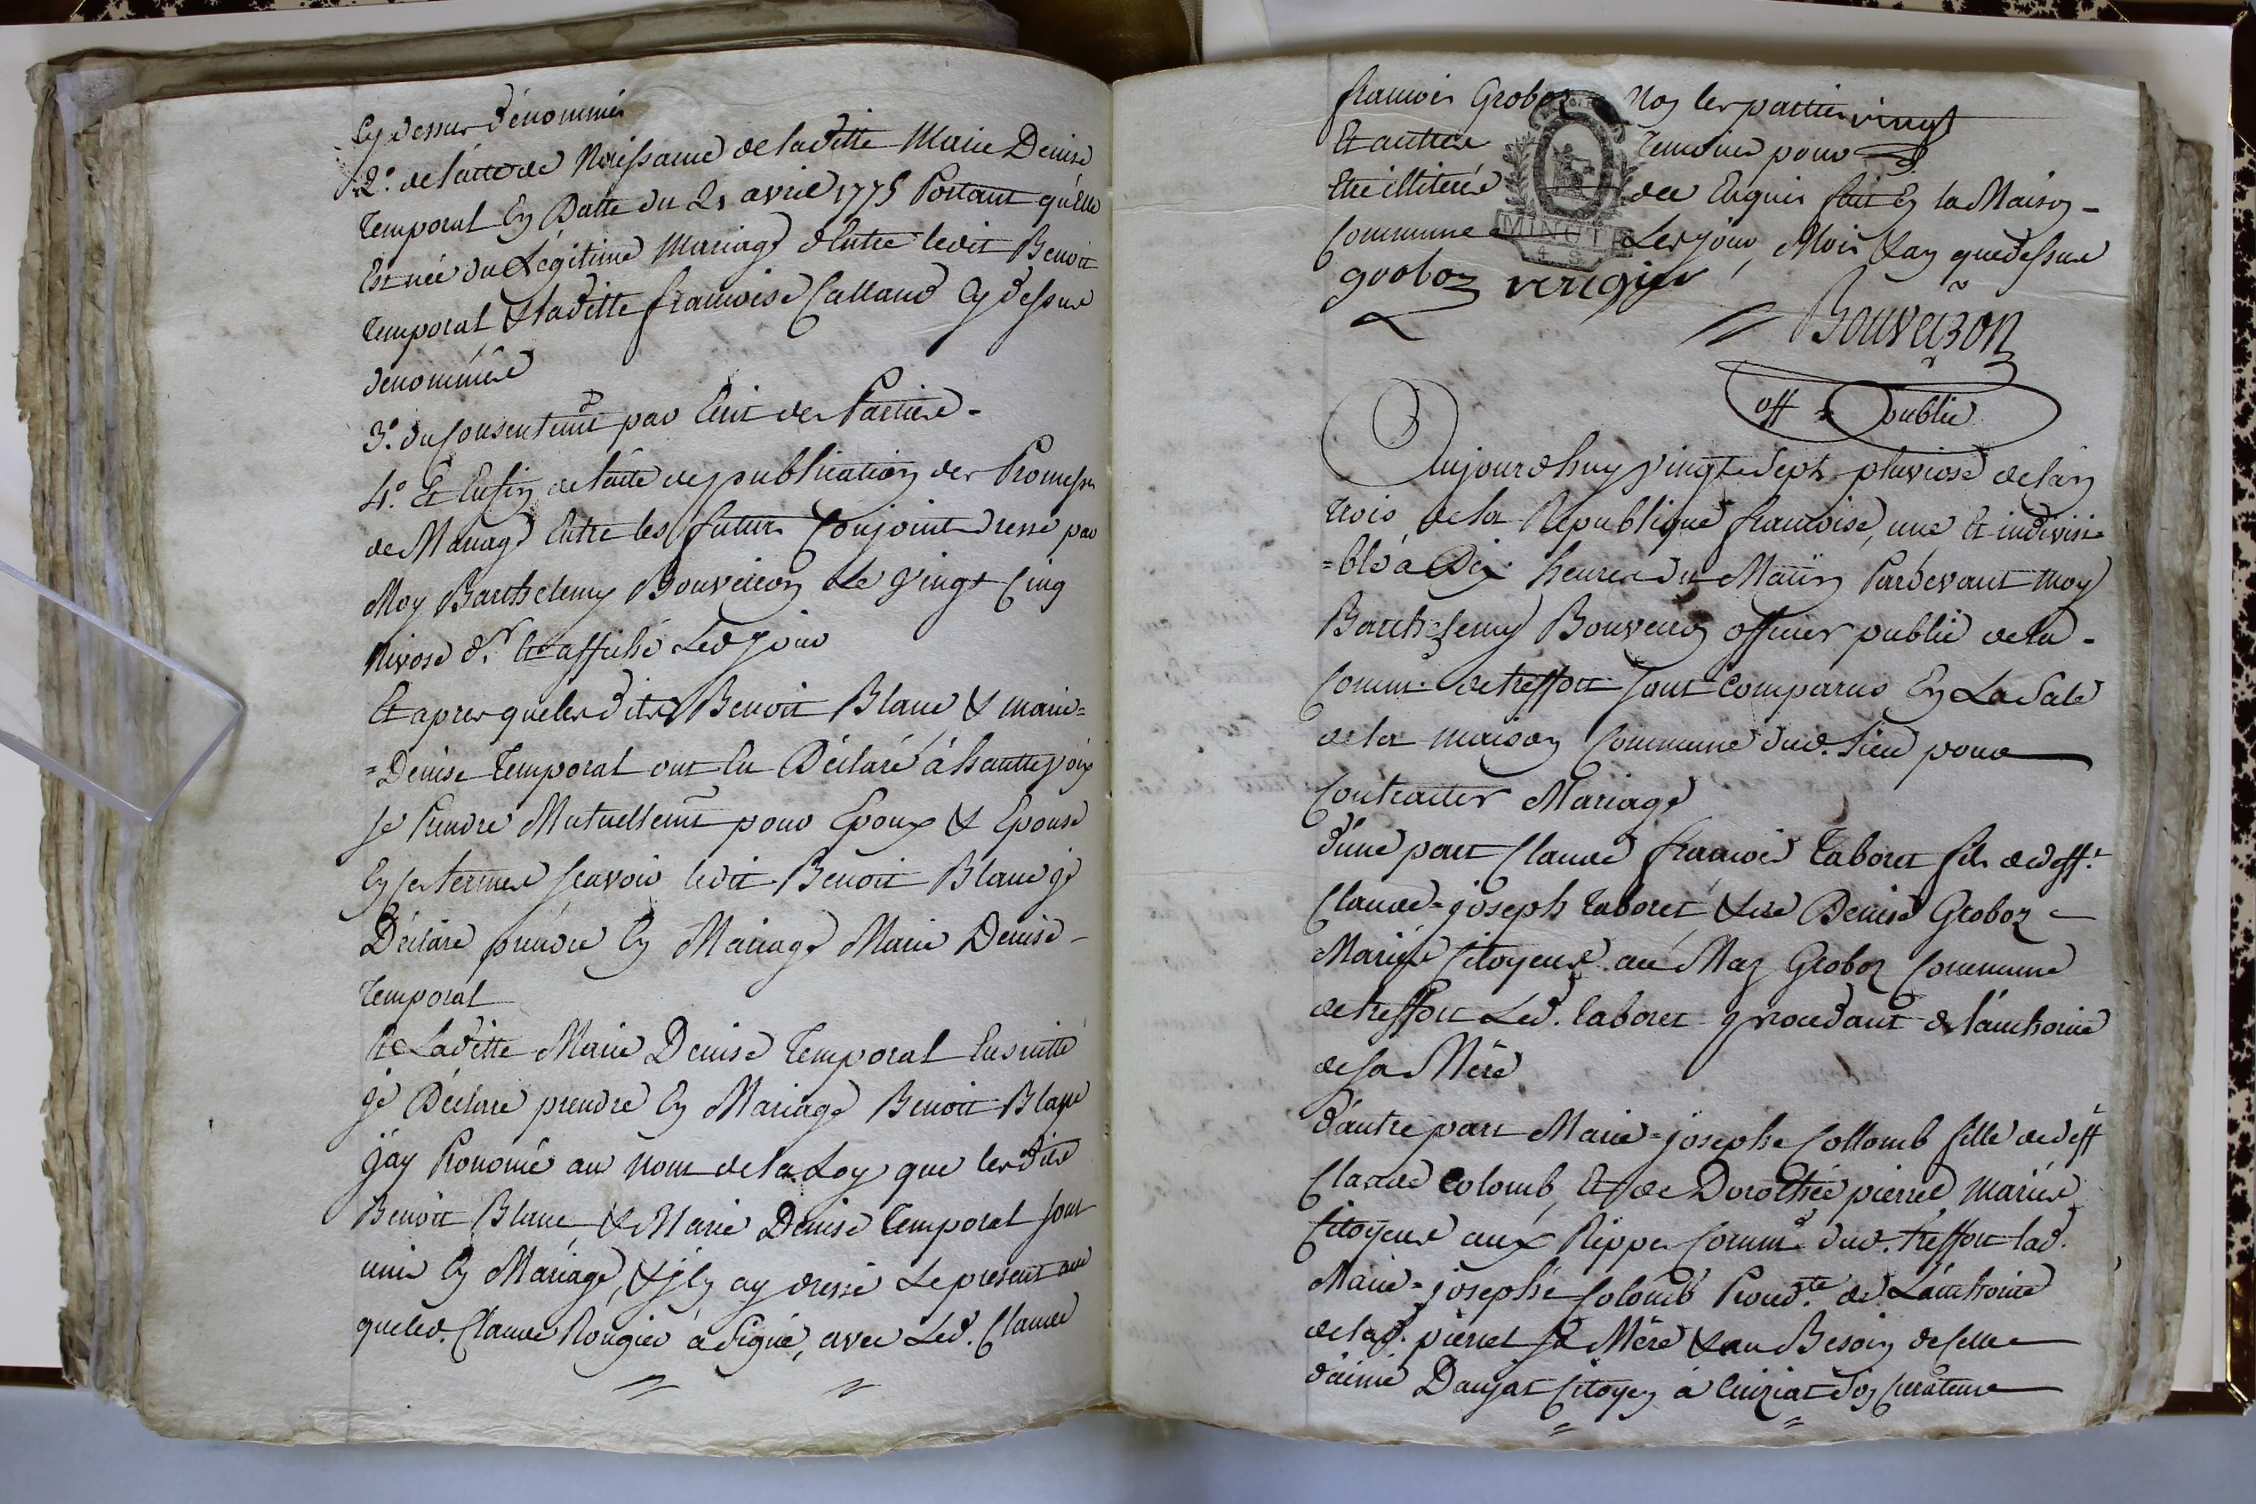 Cy dessus dénommés
2.º de l'acte de Naissance de laditte Marie Denise
Temporal En Datte du 21 avril 1775 Portant qu'Elle
Est née du Légitime Mariage d'Entre ledit Benoit
Temporal & laditte francoise Calland Cy dessus
denommés
3.º du Consentemt par Ecrit des Parties -
4.º Et Enfin de l'acte de publication des Promesses
de Mariage Entre les futurs Conjoints dressé par
Moy Barthelemy Bouveiron Le Vingt Cinq
Nivose d.r Et affiché Led jour
Et apres que lesdites Benoit Blanc & marie=
=Denise Temporal ont Eu Déclaré à hautte voix
se Prendre Mutuellemt pour Epoux & Epouse
En ces termes scavoir ledit Benoit Blanc je
Déclare prendre En Mariage Marie Denise -
Temporal
Et Laditte Marie Denise Temporal Ensuitte
je Déclare prendre En Mariage Benoit Blanc
j'ay Prononcé au Nom de la Loy que lesdits
Benoit Blanc & Marie Denise Temporal sont
unis En Mariage, & j'En ay dressé Le present acte
que led. Claude Rougier a Signé, avec Led. Claude
francois Groboz Non les parties vingt
Et autres temoins pour
Etre illiterés de Enquis fait En la Maison -
Commune Les jour, Mois & an que dessus
MINUTE
groboz rougier
Bouveiron
off. public
Aujourdhuy Vingt Sept pluviose de l'an
trois de la Republique francoise, une Et indivisi=
=ble à Dix heures du Matin Pardevant moy
Barthelemy Bouveiron officier public de la -
Comm. de treffort sont Comparus En La Sale
de la maison Commune dud. lieu pour
Contracter Mariage
d'une part Claude francois Taboret fils de deff.t
Claude=joseph Taboret, & de Denise Groboz -
Mariés Citoyens au Maz Groboz Commune
de treffort Led. taboret procedant de l'authorité
de sa Mère
d'autre part Marie=josephe Collomb fille de deff
Claude Colomb, Et de Dorothée pierrel mariés
Citoyens aux Rippes Comm.e dud. treffort lad.
Marie=josephe Colomb Proced.te de L'authorité
de lad. pierrel sa Mère & au Besoin de celle
d'aimé Daujat Citoyen à Cuiziat son Curateur